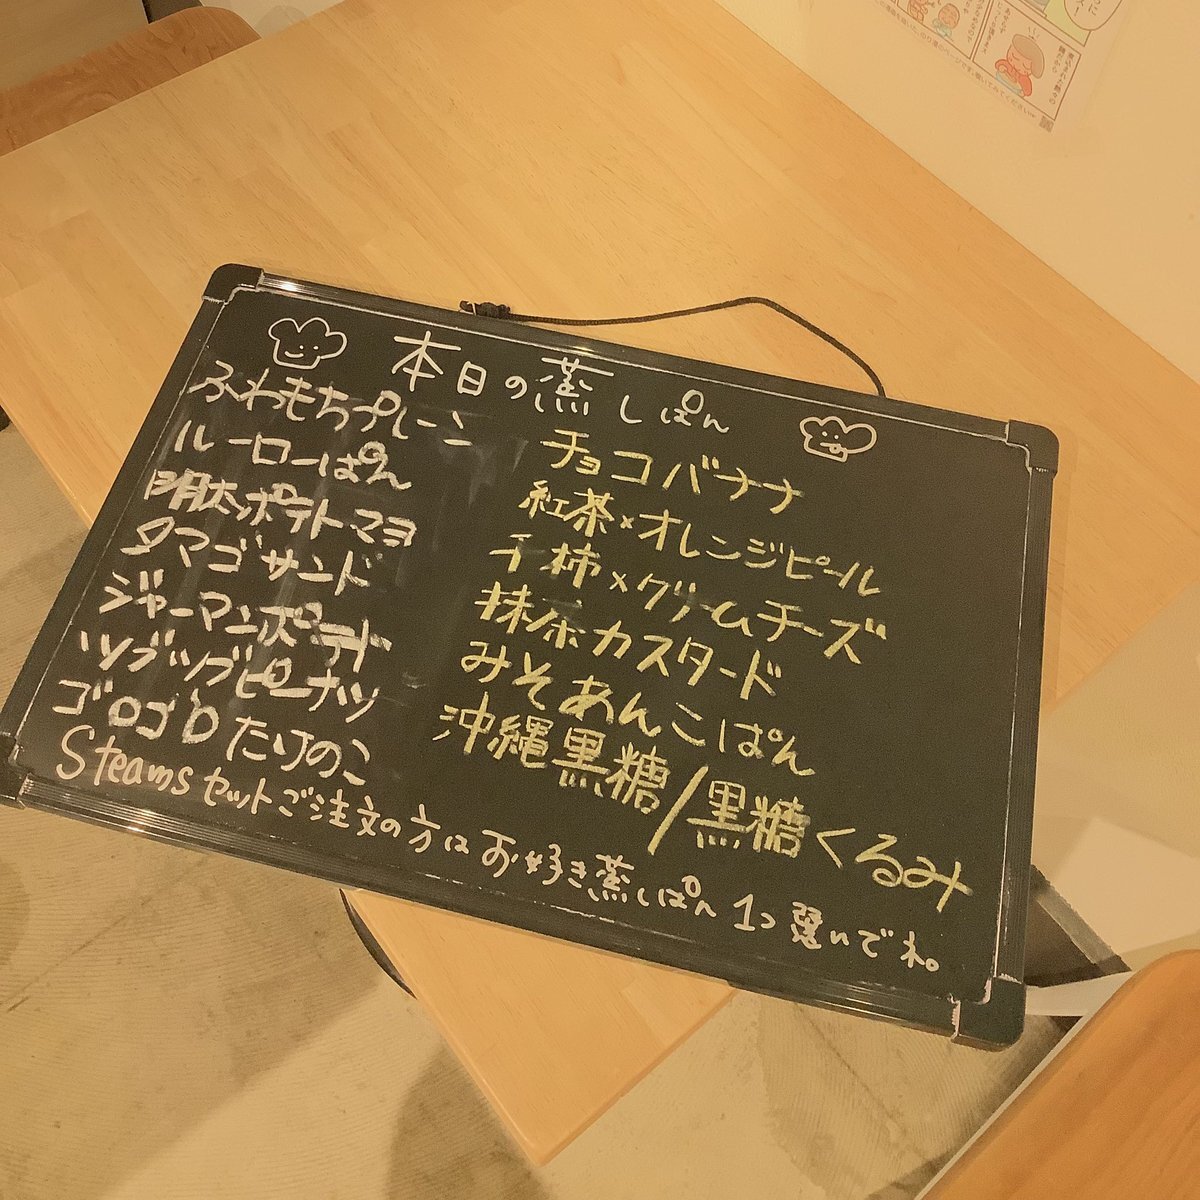 本日の蒸しぱん
ふわもちプレーン
ルーローぱん
明太ポテトマヨ
タマゴサンド
ジャーマンポテト
ツブツブピーナツ
ゴロゴロたけのこ
チョコバナナ
紅茶×オレンジピール
干柿×クリームチーズ
抹茶カスタード
みそあんこぱん
沖縄黒糖/黒糖くるみ
Steamsセットご注文の方はお好き蒸しぱん1つ選いでね。